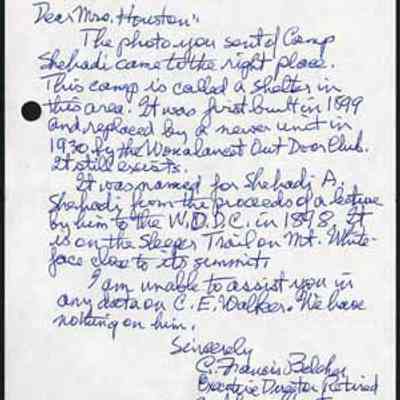 Dear Mrs. Houston"
The photo you sent of Camp
Shehadi came to the right place.
This camp is called a shelter in
this area. It was first built in 1899
and replaced by a newer unit in
1930 by the Wonalancet Out Door Club.
It still exists.
It was named for Shehadi A.
Shehadi from the proceeds of a lecture
by him to the W.O.D.C. in 1898. It
is on the Sleeper Trail on Mt. White-
face close to its summit.
I am unable to assist you in
any data on C. E. Walker. We have
nothing on him.
Sincerely
C. Francis Belcher
Executive Director Retired